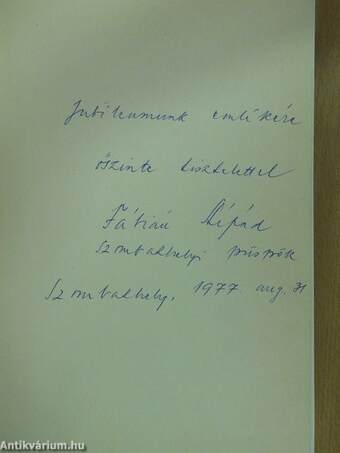 Jubileumunk emlékére
őszinte tisztelettel
Fábián Árpád
szombathelyi püspök
Szombathely, 1977 aug. 31
Antikvárium.hu